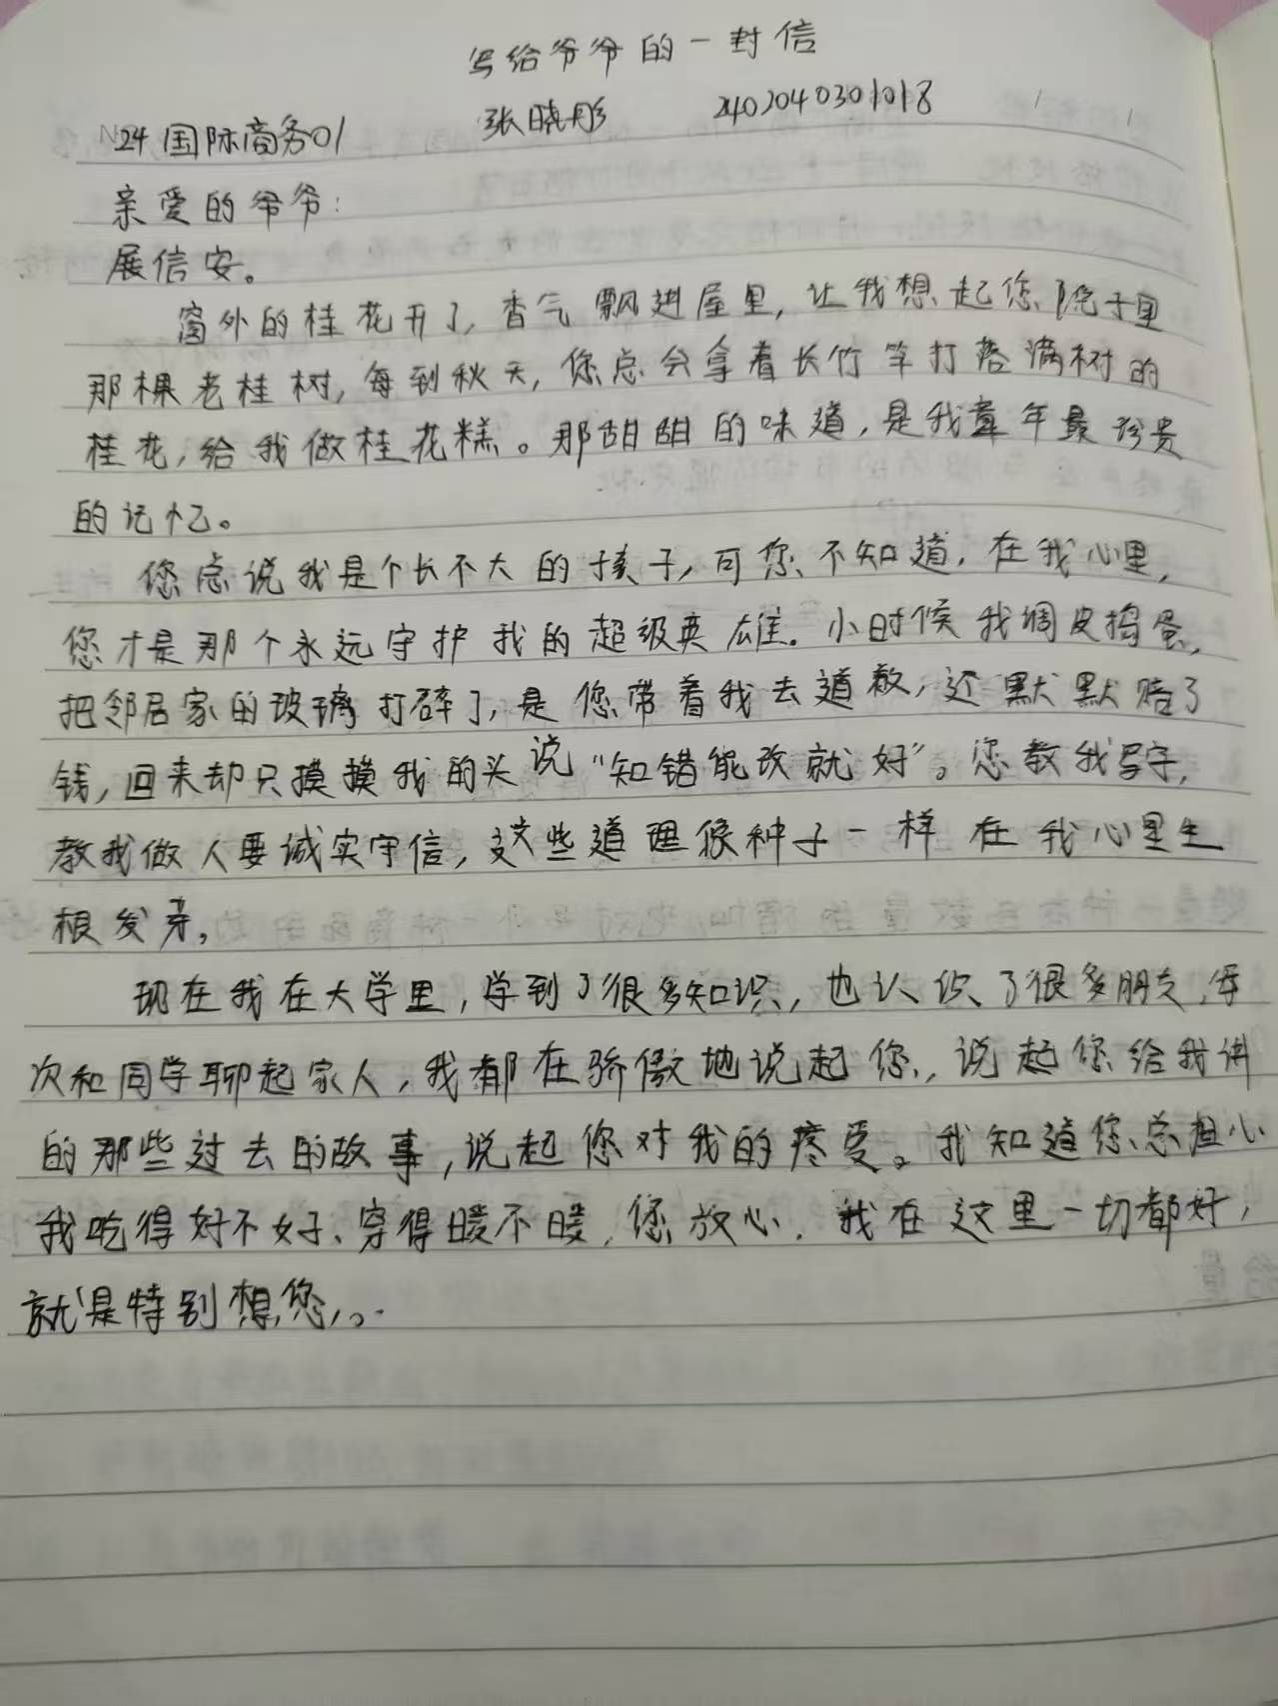 写给爷爷的一封信
24国际商务01 张晓彤 2402040301018
亲爱的爷爷:
展信安。
窗外的桂花开了,香气飘进屋里,让我想起您院子里
那棵老桂树,每到秋天,您总会拿着长竹竿打落满树的
桂花,给我做桂花糕。那甜甜的味道,是我童年最珍贵
的记忆。
您总说我是个长不大的孩子,可您不知道,在我心里,
您才是那个永远守护我的超级英雄。小时候我调皮捣蛋,
把邻居家的玻璃打碎了,是您带着我去道歉,还默默赔了
钱,回来却只摸摸我的头说“知错能改就好”。您教我写字,
教我做人要诚实守信,这些道理像种子一样在我心里生
根发芽。
现在我在大学里,学到了很多知识,也认识了很多朋友,每
次和同学聊起家人,我都在骄傲地说起您,说起您给我讲
的那些过去的故事,说起您对我的疼爱。我知道您总担心
我吃得好不好、穿得暖不暖,您放心,我在这里一切都好,
就是特别想您。